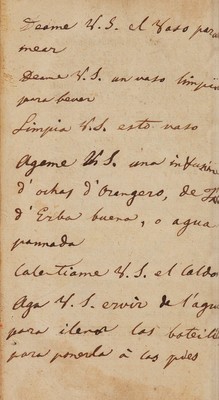 Deame V.S. el Vaso para
mear
Deme V.S. un vaso limpio
para bever
Limpia V.S. esto vaso
Agame V.S. una infusion
d' ochas d'Orangero, de
d'Erba buena, o agua
pannada
Calentiame V.S. el Caldo
Aga V.S. ervir de l'agua
para llenar las boteill
para ponerla à los pies